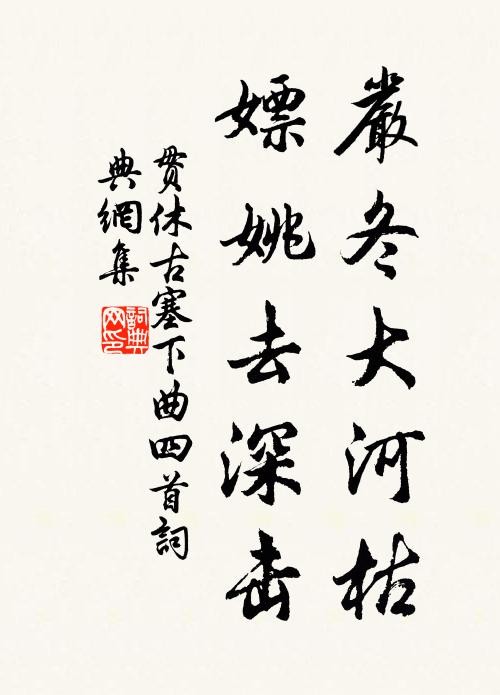 嚴冬大河枯
嫖姚去深击
贯休古塞下曲四首詞
典網集
詞典网印